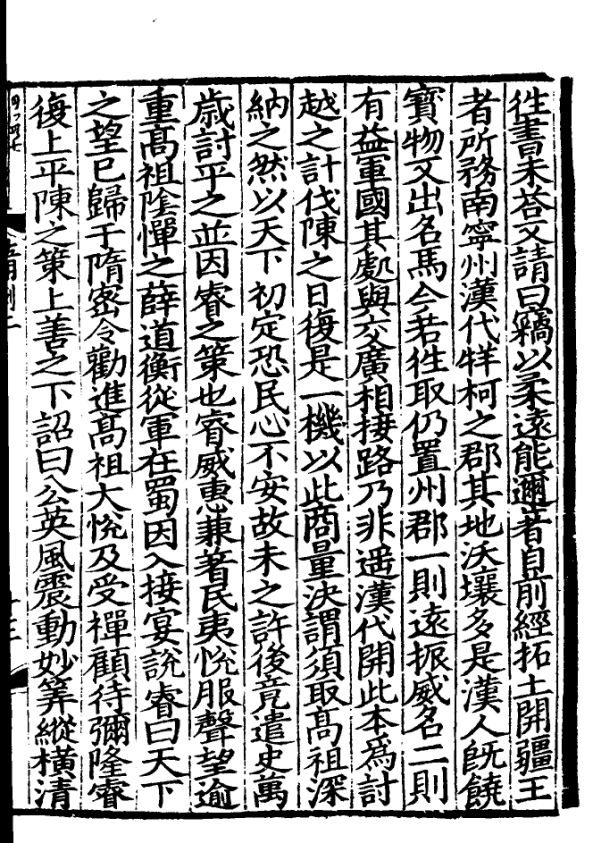 徃書未荅又請曰竊以柔遠能邇著自前經拓土開疆王
者所務南寧州漢代牂柯之郡其地沃壤多是漢人旣饒
寶物又出名馬今若徃取仍置州郡一則遠振威名二則
有益軍國其處與交廣相接路乃非遥漢代開此本爲討
越之計伐陳之日復是一機以此商量決謂須取髙祖深
納之然以天下初定恐民心不安故未之許後竟遣史萬
歳討平之並因睿之策也睿威惠兼著民夷悅服聲望逾
重髙祖隂憚之薛道衡從軍在蜀因入接宴說睿曰天下
之望已歸于隋密令勸進髙祖大悅及受禪顧待彌隆睿
復上平陳之策上善之下詔曰公英風震動妙筭縱横清